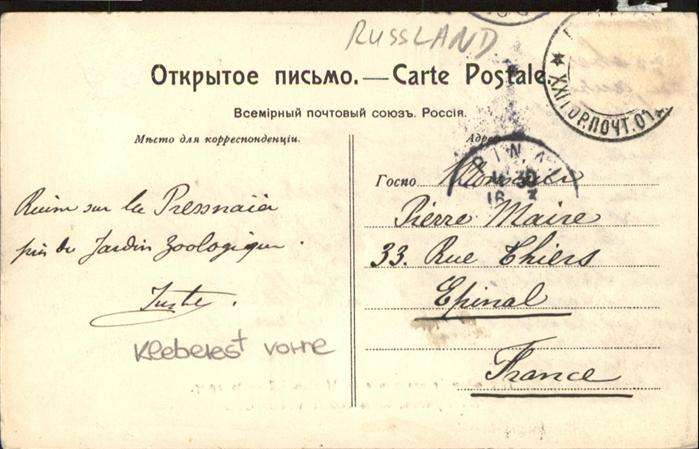 RUSSLAND
Открытое письмо. — Carte Postale.
Всемірный почтовый союзъ. Россія.
Мѣсто для корреспонденціи.
Адре
XXII ГОР.ПОЧТ.ОТ
PINA
30
16
Госпо Monsieur
Pierre Maire
33. Rue Thiers
Epinal
France
Ruine sur la Pressnaïa
près du Jardin Zoologique.
Juste.
Kleberest vorne